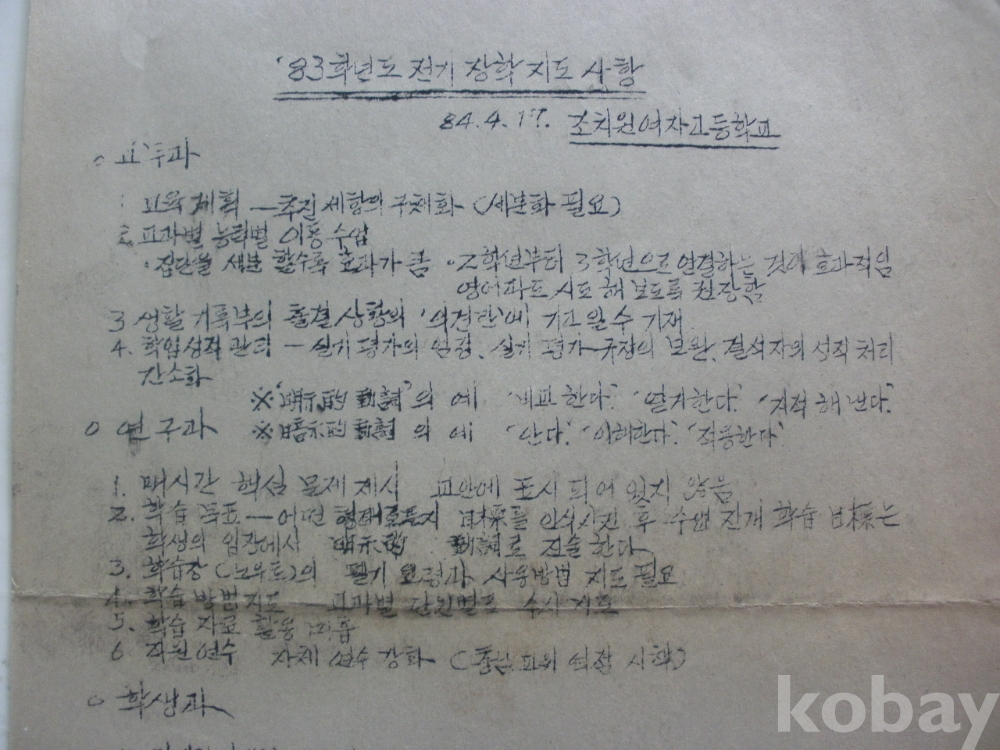 '83학년도 전기 장학 지도 사항
84. 4. 17. 조치원여자고등학교
○ 교무과
1. 교육계획 — 추진 세항의 구체화 (세분화 필요)
2. 교과별 능력별 이동수업
· 집단을 세분 할수록 효과가 큼 · 2학년부터 3학년으로 연결하는 것이 효과적임
영어과도 시도 해 보도록 권장함
3 생활기록부의 출결상황의 '의견란'에 기고 기재
4. 학업성적 관리 — 실기평가의 실기 평가 규정의 보완, 결석자의 성적 처리
간소화
※ '明示的 動詞'의 예 '비교한다.' '열거한다.' '지적 해 낸다.'
○ 연구과 ※ 暗示的 動詞의 예 '안다.' '이해한다.' '적용한다'
1. 매시간 핵심 문제 제시 교안에 표시 되어 있지 않음
2. 학습목표 — 어떤 형태로든지 目標를 인식시킨 후 수업 전개 학습 目標는
학생의 입장에서 明示的 動詞로 진술한다
3. 학습장 (노우트)의 필기 요령과 사용방법 지도 필요
4. 학습 방법 지도 교과별 단원별로 수시 지도
5. 학습 자료 활용 미흡
6 직원연수 자체 연수 강화 (시책)
○ 학생과
kobay